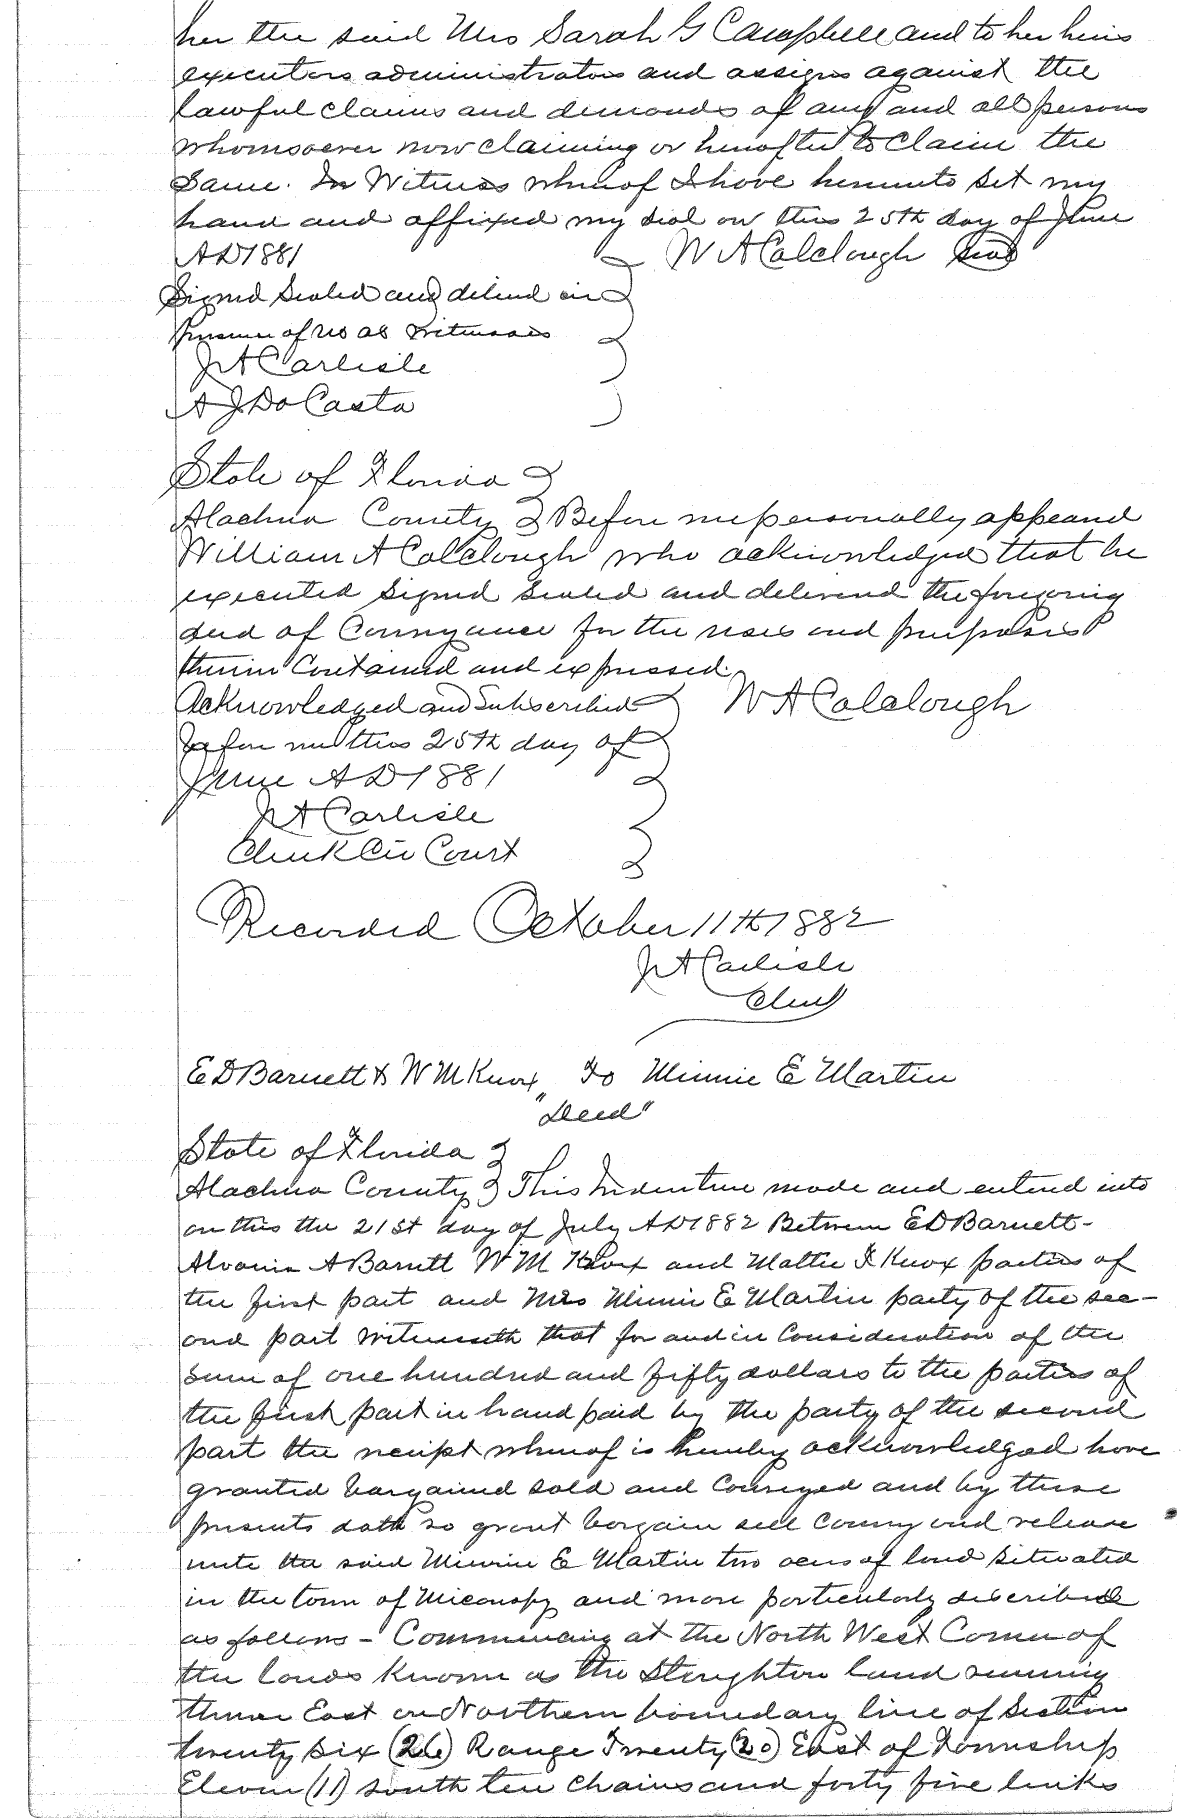 her the said Mrs Sarah G Campbell and to her heirs
executors administrators and assigns against the
lawful claims and demands of any and all persons
whomsoever now claiming or hereafter to claim the
same. In Witness whereof I have hereunto set my
hand and affixed my seal on this 25th day of June
AD 1881 W A Colclough Seal
Signed Sealed and delivered in
presence of us as witnesses
J A Carlisle
A J DaCosta
State of Florida
Alachua County Before me personally appeared
William A Colclough who acknowledged that he
executed signed sealed and delivered the foregoing
deed of Conveyance for the uses and purposes
therein Contained and expressed.
Acknowledged and Subscribed W A Colclough
before me this 25th day of
June AD 1881
J A Carlisle
Clerk Cir Court
Recorded October 11th 1882
J A Carlisle
Clerk
E D Barnett & W M Knox To Minnie E Martin
"Deed"
State of Florida
Alachua County This Indenture made and entered into
on this the 21st day of July AD 1882 Between E D Barnett-
A Barnett W M Knox and Mattie F Knox parties of
the first part and Mrs Minnie E Martin party of the sec-
ond part witnesseth that for and in Consideration of the
sum of one hundred and fifty dollars to the parties of
the first part in hand paid by the party of the second
part the receipt whereof is hereby acknowledged have
granted bargained sold and Conveyed and by these
presents doth so grant bargain sell Convey and release
unto the said Minnie E Martin two acres of land situated
in the town of Micanopy and more particularly described
as follows - Commencing at the North West Corner of
the lands known as the Stoughton land running
thence East on Northern boundary line of Section
twenty six (26) Range Twenty (20) East of Township
Eleven (11) south ten chains and forty five links